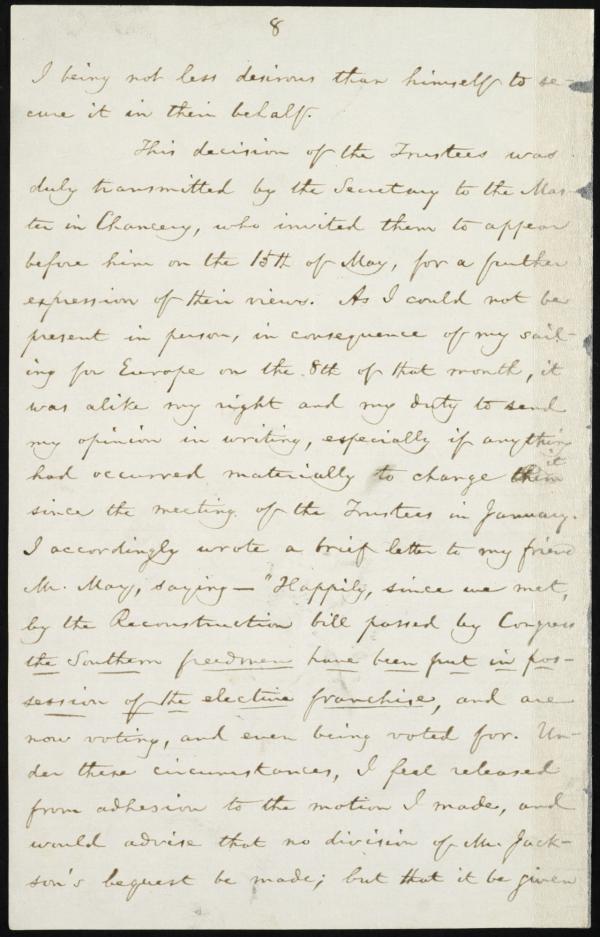 8
I being not less desirous than himself to se-
cure it in their behalf.
This decision of the Trustees was
duly transmitted by the Secretary to the Mas-
ter in Chancery, who invited them to appear
before him on the 15th of May, for a further
expression of their views. As I could not be
present in person, in consequence of my sail-
ing for Europe on the 8th of that month, it
was alike my right and my duty to send
my opinion in writing, especially if anything
had occurred materially to change it
since the meeting of the Trustees in January.
I accordingly wrote a brief letter to my friend
Mr. May, saying—"Happily, since we met,
by the Reconstruction bill passed by Congress
the Southern freedmen have been put in pos-
session of the elective franchise, and are
now voting, and even being voted for. Un-
der these circumstances, I feel released
from adhesion to the motion I made, and
would advise that no division of Mr. Jack-
son's bequest be made; but that it be given